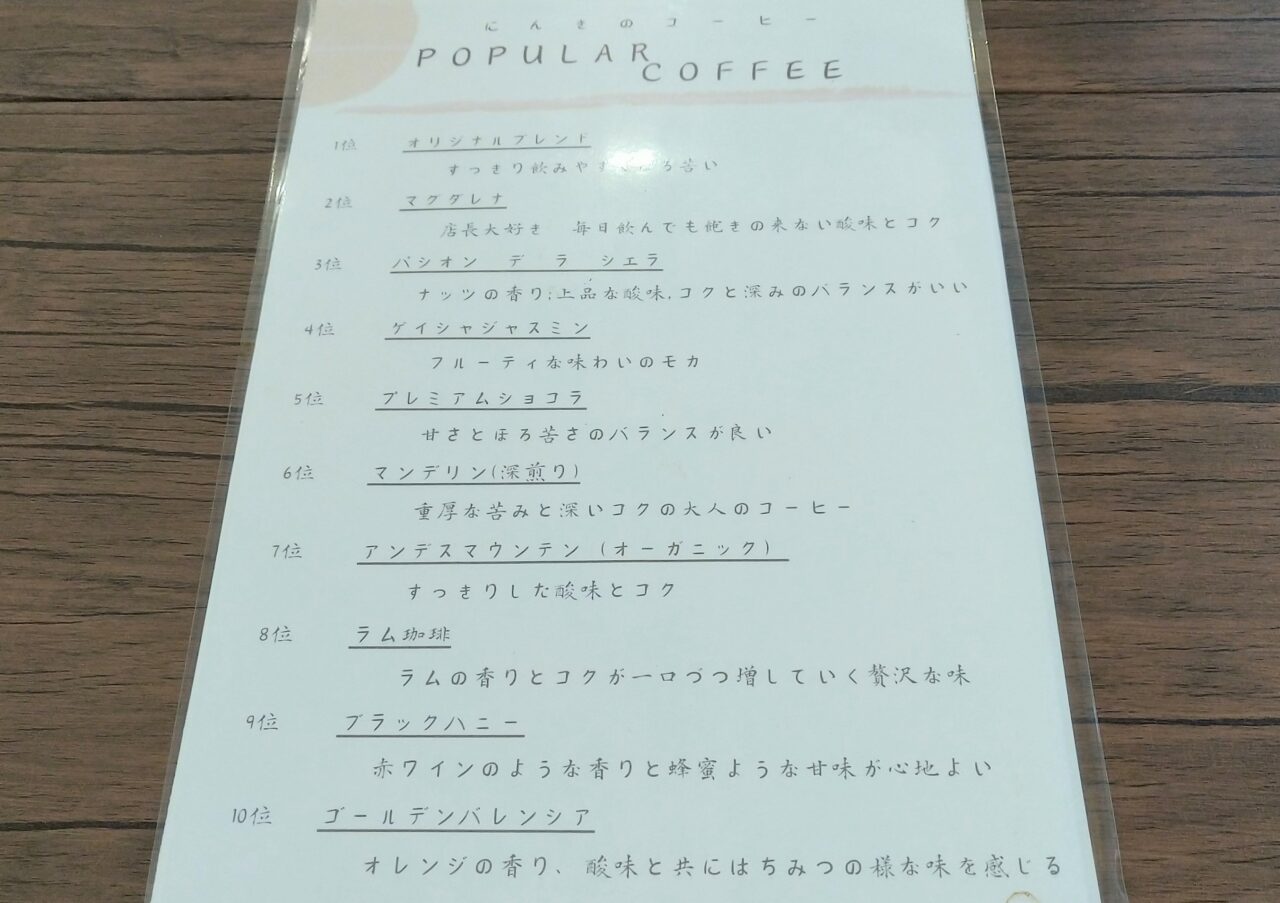 にんきのコーヒー
POPULAR
COFFEE
1位 オリジナルブレンド
すっきり飲みやすいほろ苦い
2位 マグダレナ
店長大好き 毎日飲んでも飽きの来ない酸味とコク
3位 パシオン デ ラ シエラ
ナッツの香り、上品な酸味、コクと深みのバランスがいい
4位 ゲイシャジャスミン
フルーティな味わいのモカ
5位 プレミアムショコラ
甘さとほろ苦さのバランスが良い
6位 マンデリン(深煎り)
重厚な苦みと深いコクの大人のコーヒー
7位 アンデスマウンテン(オーガニック)
すっきりした酸味とコク
8位 ラム珈琲
ラムの香りとコクが一口づつ増していく贅沢な味
9位 ブラックハニー
赤ワインのような香りと蜂蜜ような甘味が心地よい
10位 ゴールデンバレンシア
オレンジの香り、酸味と共にはちみつの様な味を感じる